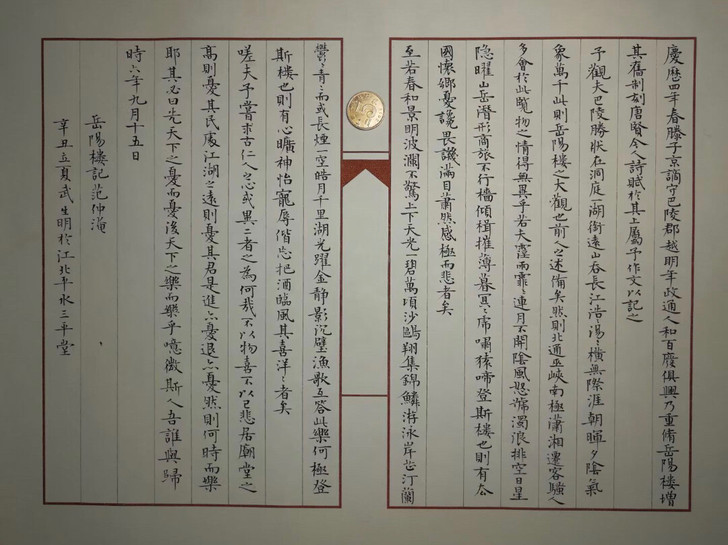 慶曆四年春滕子京謫守巴陵郡越明年政通人和百廢俱興乃重脩岳陽樓增
其舊制刻唐賢今人詩賦於其上屬予作文以記之
予觀夫巴陵勝狀在洞庭一湖銜遠山吞長江浩湯〻橫無際涯朝暉夕陰氣
象萬千此則岳陽樓之大觀也前人之述備矣然則北通巫峽南極瀟湘遷客騷人
多會於此覽物之情得無異乎若夫霪雨霏〻連月不開陰風怒號濁浪排空日星
隱曜山岳潛形商旅不行檣傾楫摧薄暮冥〻虎嘯猿啼登斯樓也則有去
國懷鄉憂讒畏譏滿目蕭然感極而悲者矣
至若春和景明波瀾不驚上下天光一碧萬頃沙鷗翔集錦鱗游泳岸芷汀蘭
鬱〻青〻而或長煙一空皓月千里湖光躍金靜影沉璧漁歌互答此樂何極登
斯樓也則有心曠神怡寵辱偕忘把酒臨風其喜洋〻者矣
嗟夫予嘗求古仁人之心或異二者之為何哉不以物喜不以己悲居廟堂之
高則憂其民處江湖之遠則憂其君是進亦憂退亦憂然則何時而樂
耶其必曰先天下之憂而憂後天下之樂而樂乎噫微斯人吾誰與歸
時六年九月十五日
岳陽樓記范仲淹
辛丑立夏武生明於江北平水三平堂